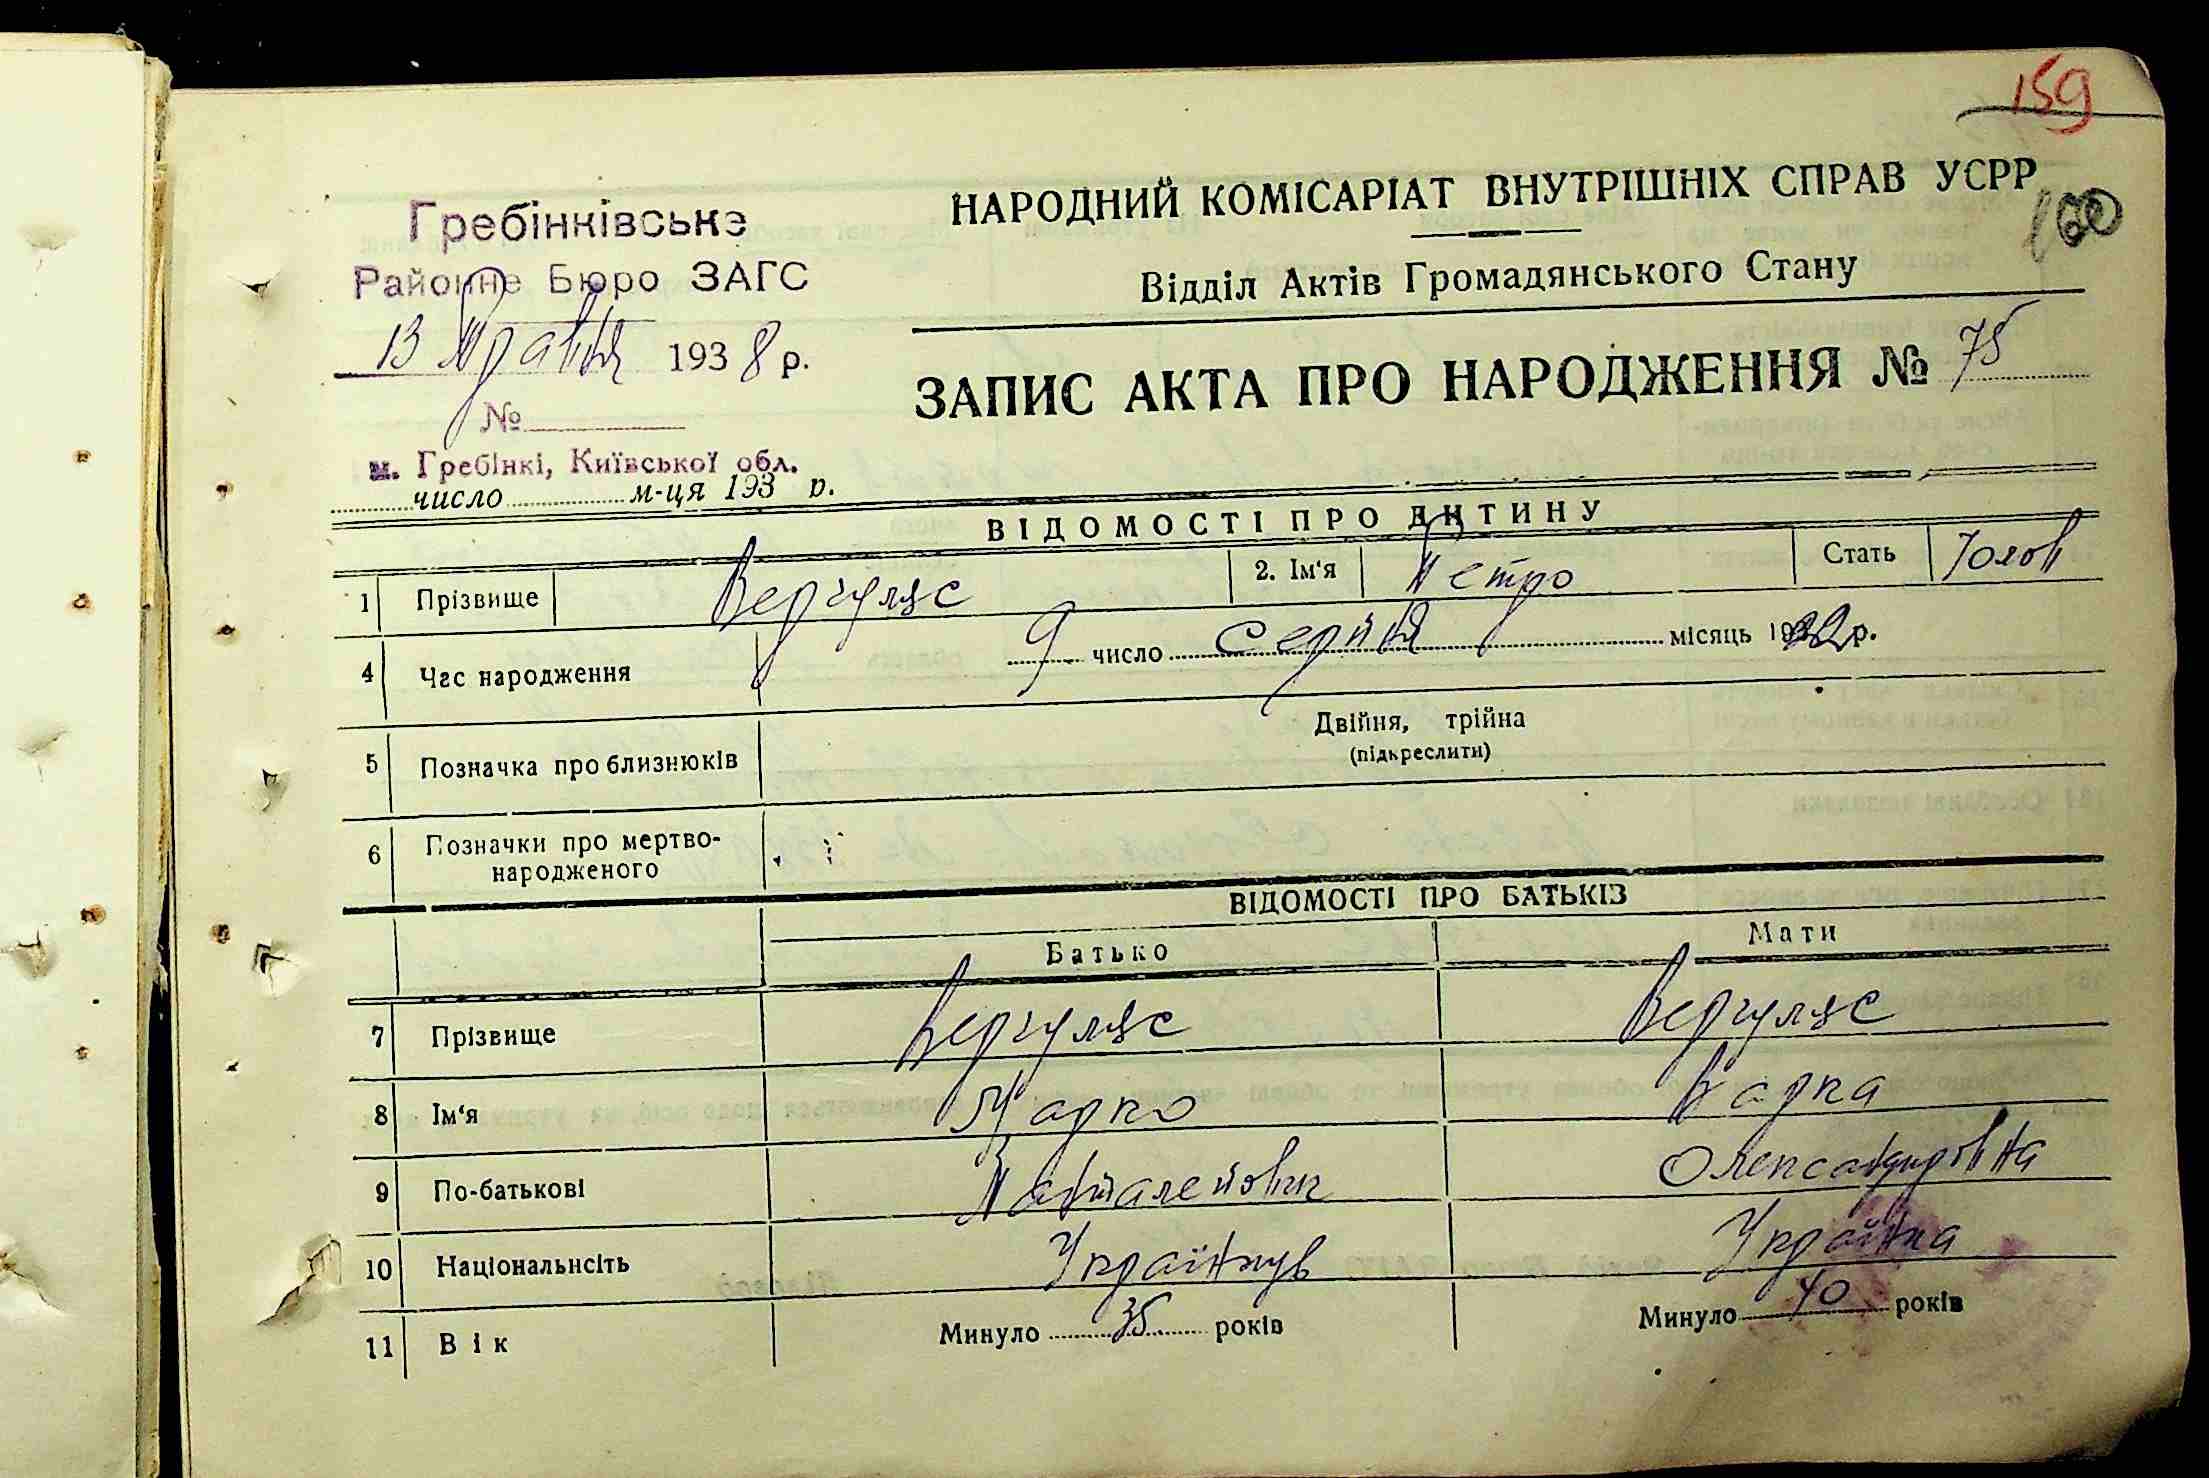 159
НАРОДНИЙ КОМІСАРІАТ ВНУТРІШНІХ СПРАВ УСРР
160
Відділ Актів Громадянського Стану
Гребінківське
Районне Бюро ЗАГС
13 Травня 1938 р.
№
м. Гребінкі, Київської обл.
число м-ця 193 р.
ЗАПИС АКТА ПРО НАРОДЖЕННЯ № 75
ВІДОМОСТІ ПРО ДИТИНУ
1 Прізвище Вергуляс 2. Ім‘я Петро Стать Чолов
4 Час народження 9 число Серпня місяць 19 р.
5 Позначка про близнюків Двійня, трійна
(підкреслити)
6 Позначки про мертво-
народженого
ВІДОМОСТІ ПРО БАТЬКІВ
Батько Мати
7 Прізвище Вергуляс Вергуляс
8 Ім‘я Марко Варка
9 По-батькові Олександровна
10 Національнсіть Українць Украйнка
11 Вік Минуло 35 років Минуло 40 років